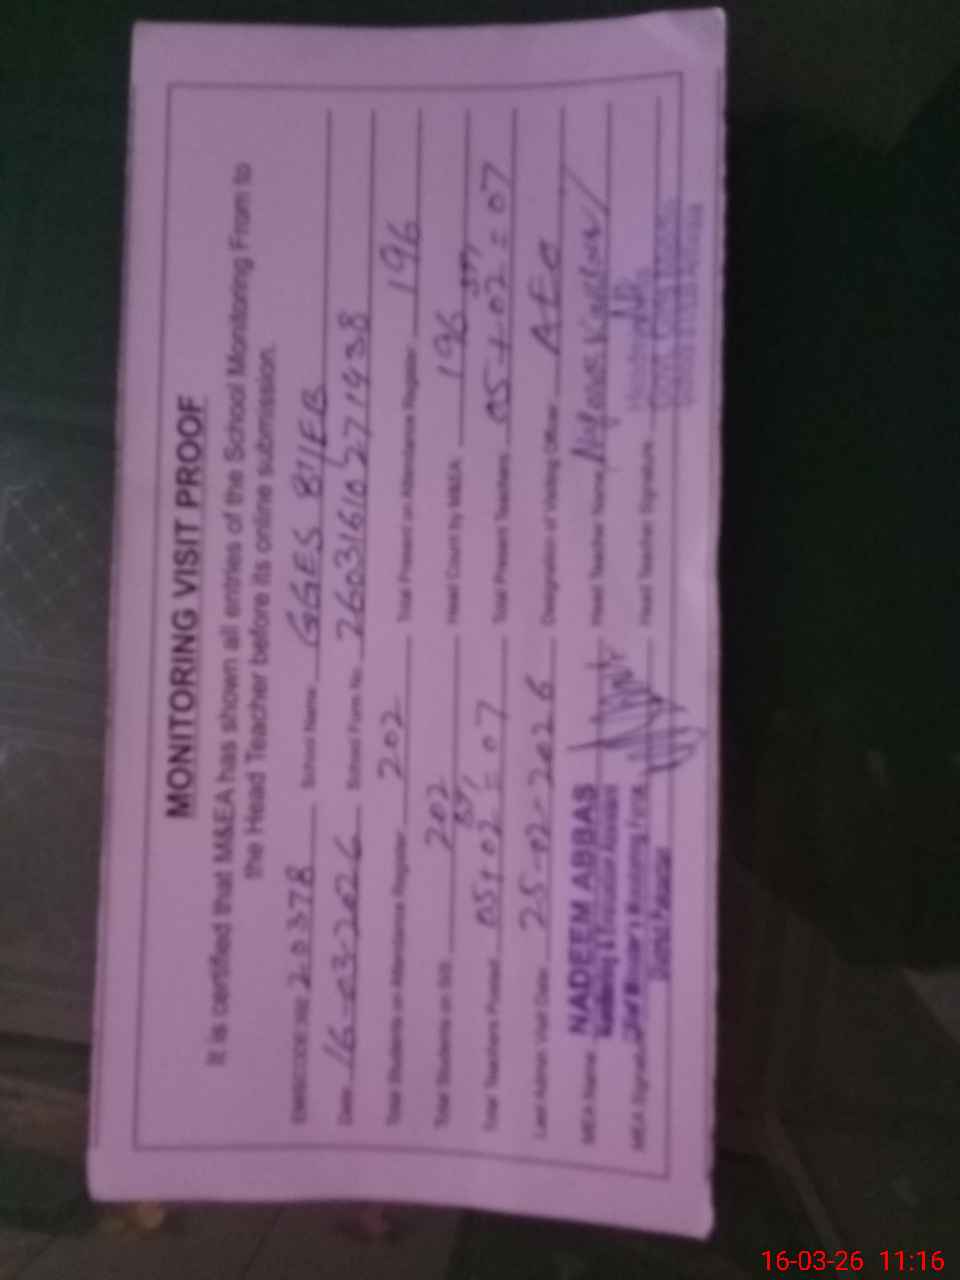 MONITORING VISIT PROOF
It is certified that M&EA has shown all entries of the School Monitoring From to
the Head Teacher before its online submission.
EMISCODE 20378 School Name GGES 811EB
Date 16-03-2026 School Form No. 26031610271938
Total Students on Attendance Register 202 Total Present on Attendance Register 196
Total Students on SIS 202 Head Count by M&EA 196
Total Teachers Posted 05+02=07 Total Present Teachers 05+02=07
Last Admin Visit Date 25-02-2026 Designation of Visiting Officer AEO
MEA Name NADEEM ABBAS Head Teacher Name
Monitoring & Evaluation Assistant
MEA Signature Chief Minister's Monitoring Force Head Teacher Signature
16-03-26 11:16